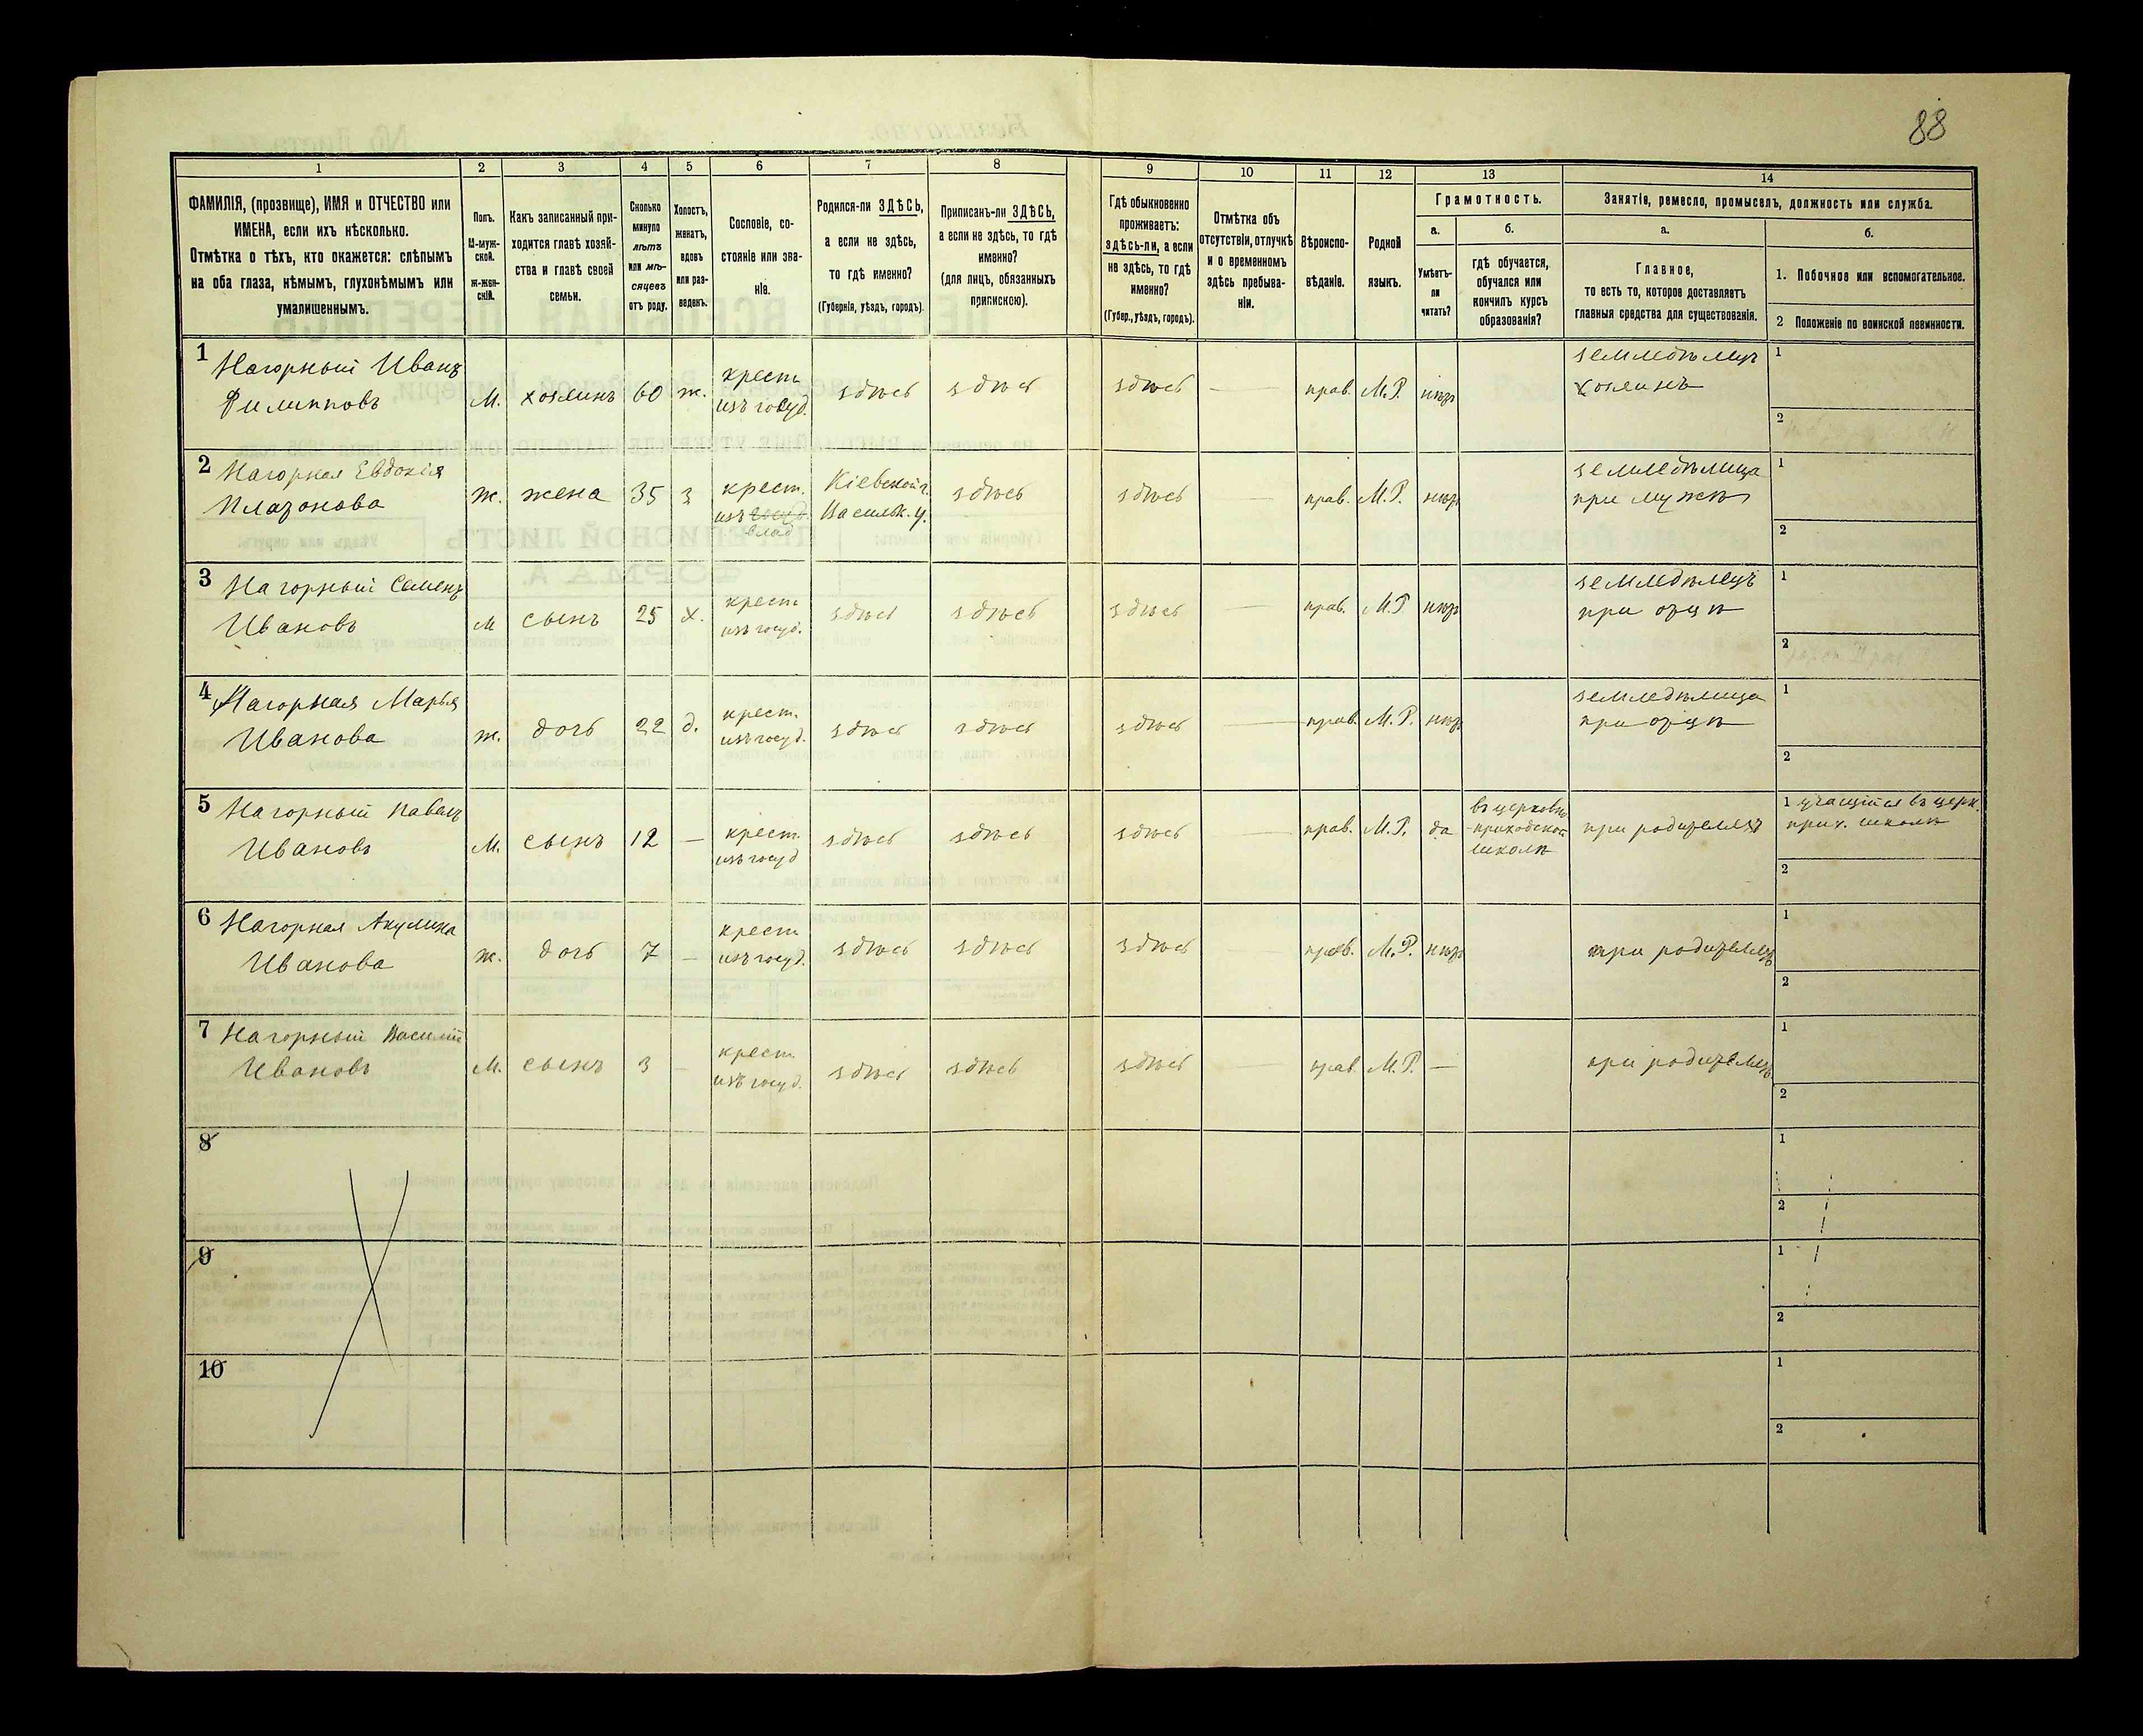 88
1 2 3 4 5 6 7 8 9 10 11 12 13 14
ФАМИЛІЯ, (прозвище), ИМЯ и ОТЧЕСТВО или
ИМЕНА, если ихъ нѣсколько.
Отмѣтка о тѣхъ, кто окажется: слѣпымъ
на оба глаза, нѣмымъ, глухонѣмымъ или
умалишеннымъ.
Полъ.
М-муж-
ской.
Ж-жен-
скій.
Какъ записанный при-
ходится главѣ хозяй-
ства и главѣ своей
семьи.
Сколько
минуло
лѣтъ
или мѣ-
сяцевъ
отъ роду.
Холостъ,
женатъ,
вдовъ
или раз-
веденъ.
Сословіе, со-
стояніе или зва-
ніе.
Родился-ли ЗДѢСЬ,
а если не здѣсь,
то гдѣ именно?
(Губернія, уѣздъ, городъ).
Приписанъ-ли ЗДѢСЬ,
а если не здѣсь, то гдѣ
именно?
(для лицъ, обязанныхъ
припискою).
Гдѣ обыкновенно
проживаетъ:
здѣсь-ли, а если
не здѣсь, то гдѣ
именно?
(Губер., уѣздъ, городъ).
Отмѣтка объ
отсутствіи, отлучкѣ
и о временномъ
здѣсь пребыва-
ніи.
Вѣроиспо-
вѣданіе.
Родной
языкъ.
Грамотность.
а.
Умѣетъ-
ли
читать?
б.
гдѣ обучается,
обучался или
кончилъ курсъ
образованія?
Занятіе, ремесло, промыселъ, должность или служба.
а.
Главное,
то есть то, которое доставляетъ
главныя средства для существованія.
б.
1. Побочное или вспомогательное.
2 Положеніе по воинской повинности.
1 Нагорный Иванъ
Филипповъ
М. хозяинъ 60 ж. крест. изъ госуд. здѣсь здѣсь здѣсь — прав. М.Р. нѣтъ
земледѣлецъ
хозяинъ
1
2
2 Нагорная Евдокія
Платонова
ж. жена 35 з крест. изъ госуд. влад Кіевской г. Васильк. у. здѣсь здѣсь — прав. М.Р. нѣтъ
земледѣлица
при мужѣ
1
2
3 Нагорный Семенъ
Ивановъ
М сынъ 25 х. крест. изъ госуд. здѣсь здѣсь здѣсь — прав. М.Р. нѣтъ
земледѣлецъ
при отцѣ
1
2
4 Нагорная Марья
Иванова
ж. дочь 22 д. крест. изъ госуд. здѣсь здѣсь здѣсь — прав. М.Р. нѣтъ
земледѣлица
при отцѣ
1
2
5 Нагорный Павелъ
Ивановъ
М. сынъ 12 — крест. изъ госуд здѣсь здѣсь здѣсь прав. М.Р. да
въ церковно
-приходской
школѣ
при родителяхъ
1 учащійся въ церк.
прих. школѣ
2
6 Нагорная Акулина
Иванова
ж. дочь 7 — крест. изъ госуд. здѣсь здѣсь здѣсь — прав. М.Р. нѣтъ
при родителяхъ
1
2
7 Нагорный Василій
Ивановъ
М. сынъ 3 — крест. изъ госуд. здѣсь здѣсь здѣсь — прав. М.Р. —
при родителяхъ
1
2
8
1
2
9
1
2
10
1
2